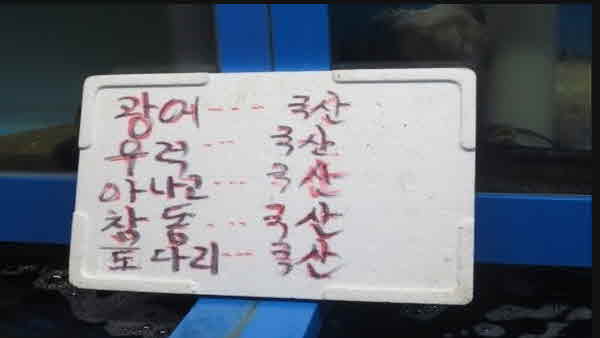 광어 --- 국산
우럭 --- 국산
아나고 --- 국산
참돔 --- 국산
도다리 --- 국산